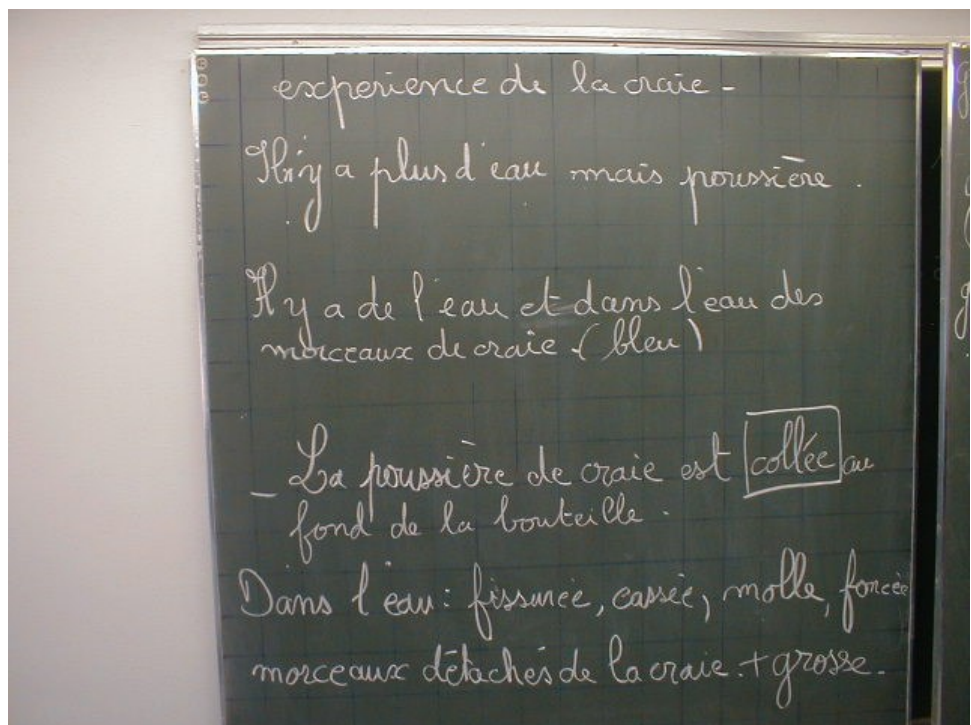 experience de la craie -
Il n'y a plus d'eau mais poussière.
Il y a de l'eau et dans l'eau des
morceaux de craie. (bleu)
_ La poussière de craie est collée au
fond de la bouteille.
Dans l'eau: fissurée, cassée, molle, foncée
morceaux détachés de la craie. + grosse.